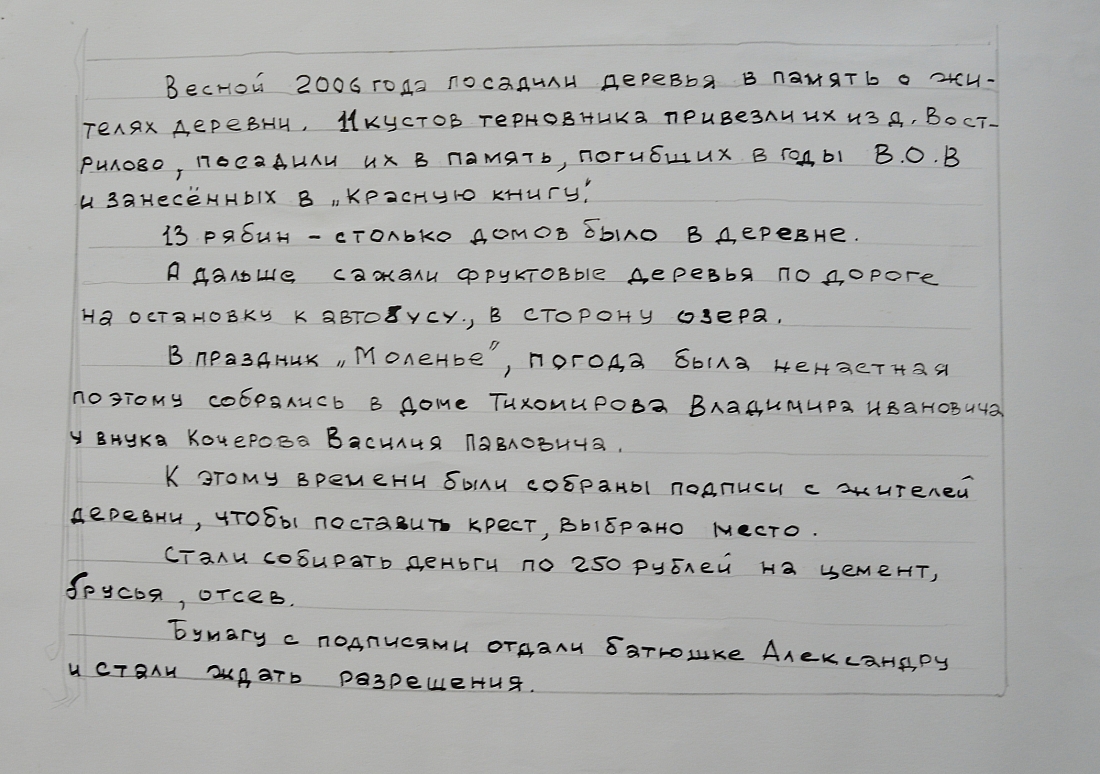 Весной 2006 года посадили деревья в память о жи-
телях деревни. 11 кустов терновника привезли их из д. Вост-
рилово, посадили их в память, погибших в годы В.О.В
и занесённых в „Красную книгу".
13 рябин – столько домов было в деревне.
А дальше сажали фруктовые деревья по дороге
на остановку к автобусу., в сторону озера.
В праздник „Моленье", погода была ненастная
поэтому собрались в доме Тихомирова Владимира Ивановича
у внука Кочерова Василия Павловича.
К этому времени были собраны подписи с жителей
деревни, чтобы поставить крест, выбрано место.
Стали собирать деньги по 250 рублей на цемент,
брусья, отсев.
Бумагу с подписями отдали батюшке Александру
и стали ждать разрешения.